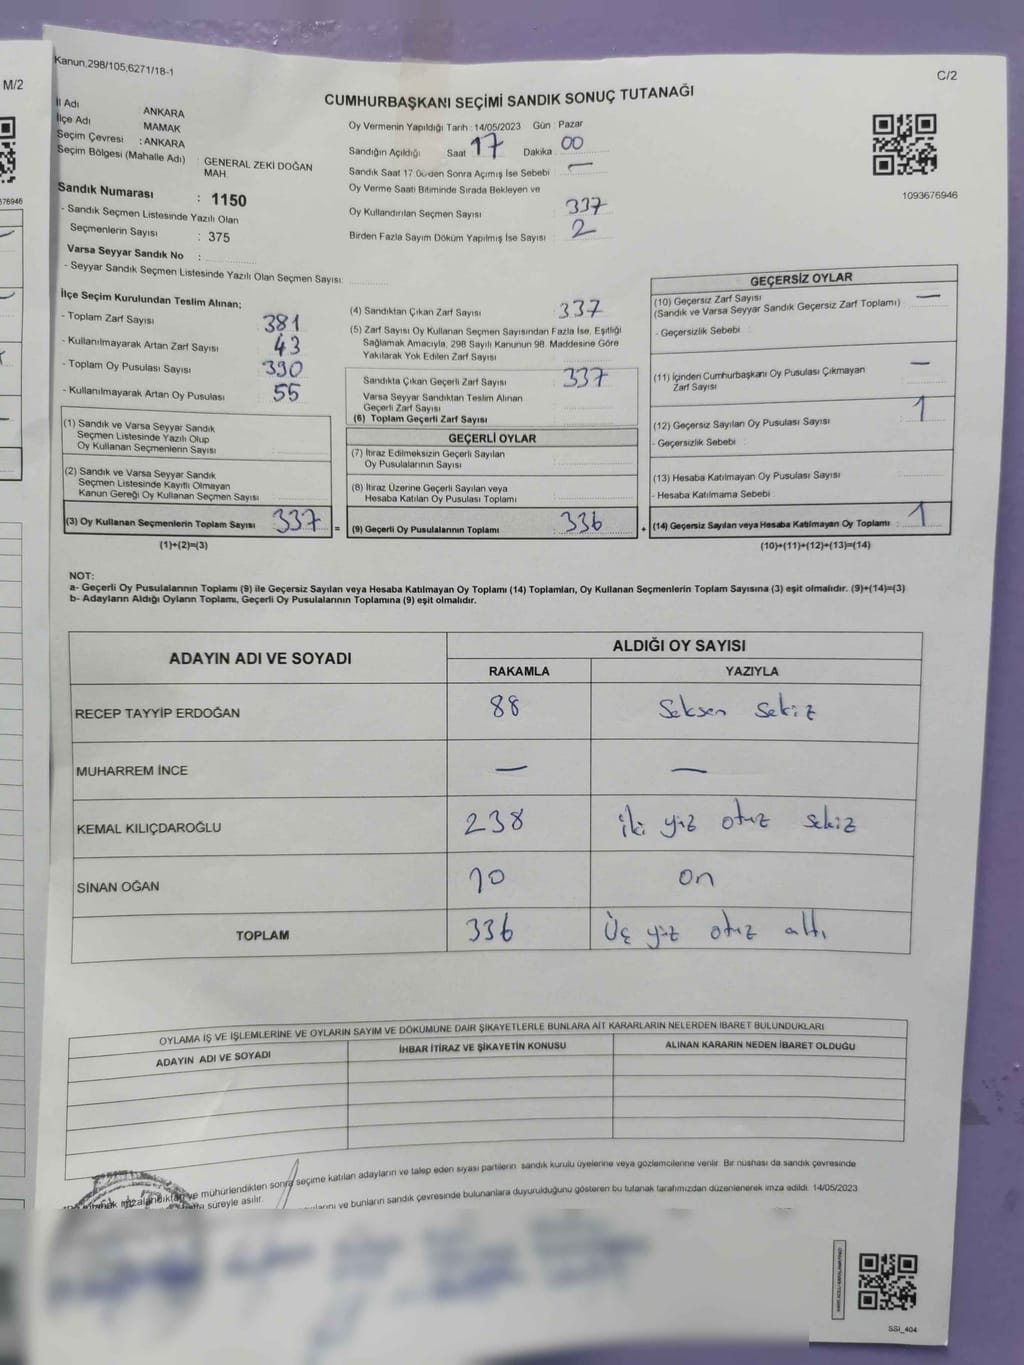 Kanun,298/105,6271/18-1
C/2
M/2
CUMHURBAŞKANI SEÇİMİ SANDIK SONUÇ TUTANAĞI
İl Adı ANKARA
İlçe Adı MAMAK
Seçim Çevresi : ANKARA
Seçim Bölgesi (Mahalle Adı) : GENERAL ZEKİ DOĞAN
MAH.
Sandık Numarası : 1150
- Sandık Seçmen Listesinde Yazılı Olan
Seçmenlerin Sayısı : 375
Varsa Seyyar Sandık No :
- Seyyar Sandık Seçmen Listesinde Yazılı Olan Seçmen Sayısı:
Oy Vermenin Yapıldığı Tarih : 14/05/2023 Gün : Pazar
Sandığın Açıldığı Saat 17 Dakika 00
Sandık Saat 17.00'den Sonra Açımış İse Sebebi —
Oy Verme Saati Bitiminde Sırada Bekleyen ve
Oy Kullandırılan Seçmen Sayısı 337
Birden Fazla Sayım Döküm Yapılmış İse Sayısı 2
1093676946
76946
İlçe Seçim Kurulundan Teslim Alınan;
- Toplam Zarf Sayısı 381
- Kullanılmayarak Artan Zarf Sayısı 43
- Toplam Oy Pusulası Sayısı 390
- Kullanılmayarak Artan Oy Pusulası 55
(1) Sandık ve Varsa Seyyar Sandık
Seçmen Listesinde Yazılı Olup
Oy Kullanan Seçmenlerin Sayısı
(2) Sandık ve Varsa Seyyar Sandık
Seçmen Listesinde Kayıtlı Olmayan
Kanun Gereği Oy Kullanan Seçmen Sayısı
(3) Oy Kullanan Seçmenlerin Toplam Sayısı 337 =
(1)+(2)=(3)
(4) Sandıktan Çıkan Zarf Sayısı 337
(5) Zarf Sayısı Oy Kullanan Seçmen Sayısından Fazla İse, Eşitliği
Sağlamak Amacıyla, 298 Sayılı Kanunun 98. Maddesine Göre
Yakılarak Yok Edilen Zarf Sayısı
Sandıkta Çıkan Geçerli Zarf Sayısı 337
Varsa Seyyar Sandıktan Teslim Alınan
Geçerli Zarf Sayısı
(6) Toplam Geçerli Zarf Sayısı
GEÇERLİ OYLAR
(7) İtiraz Edilmeksizin Geçerli Sayılan
Oy Pusulalarının Sayısı
(8) İtiraz Üzerine Geçerli Sayılan veya
Hesaba Katılan Oy Pusulası Toplamı
(9) Geçerli Oy Pusulalarının Toplamı 336 +
GEÇERSİZ OYLAR
(10) Geçersiz Zarf Sayısı —
(Sandık ve Varsa Seyyar Sandık Geçersiz Zarf Toplamı)
- Geçersizlik Sebebi
(11) İçinden Cumhurbaşkanı Oy Pusulası Çıkmayan —
Zarf Sayısı
(12) Geçersiz Sayılan Oy Pusulası Sayısı 1
- Geçersizlik Sebebi :
(13) Hesaba Katılmayan Oy Pusulası Sayısı
- Hesaba Katılmama Sebebi
(14) Geçersiz Sayılan veya Hesaba Katılmayan Oy Toplamı : 1
(10)+(11)+(12)+(13)=(14)
NOT:
a- Geçerli Oy Pusulalarının Toplamı (9) ile Geçersiz Sayılan veya Hesaba Katılmayan Oy Toplamı (14) Toplamları, Oy Kullanan Seçmenlerin Toplam Sayısına (3) eşit olmalıdır. (9)+(14)=(3)
b- Adayların Aldığı Oyların Toplamı, Geçerli Oy Pusulalarının Toplamına (9) eşit olmalıdır.
ADAYIN ADI VE SOYADI ALDIĞI OY SAYISI
RAKAMLA YAZIYLA
RECEP TAYYİP ERDOĞAN 88 Seksen Sekiz
MUHARREM İNCE — —
KEMAL KILIÇDAROĞLU 238 iki yüz otuz sekiz
SİNAN OĞAN 10 on
TOPLAM 336 Üç yüz otuz altı
OYLAMA İŞ VE İŞLEMLERİNE VE OYLARIN SAYIM VE DÖKÜMÜNE DAİR ŞİKAYETLERLE BUNLARA AİT KARARLARIN NELERDEN İBARET BULUNDUKLARI
ADAYIN ADI VE SOYADI İHBAR İTİRAZ VE ŞİKAYETİN KONUSU ALINAN KARARIN NEDEN İBARET OLDUĞU
imzalandıktan ve mühürlendikten sonra seçime katılan adayların ve talep eden siyasi partilerin sandık kurulu üyelerine veya gözlemcilerine verilir. Bir nüshası da sandık çevresinde
süreyle asılır.
ve bunların sandık çevresinde bulunanlara duyurulduğunu gösteren bu tutanak tarafımızdan düzenlenerek imza edildi. 14/05/2023
SSI_404